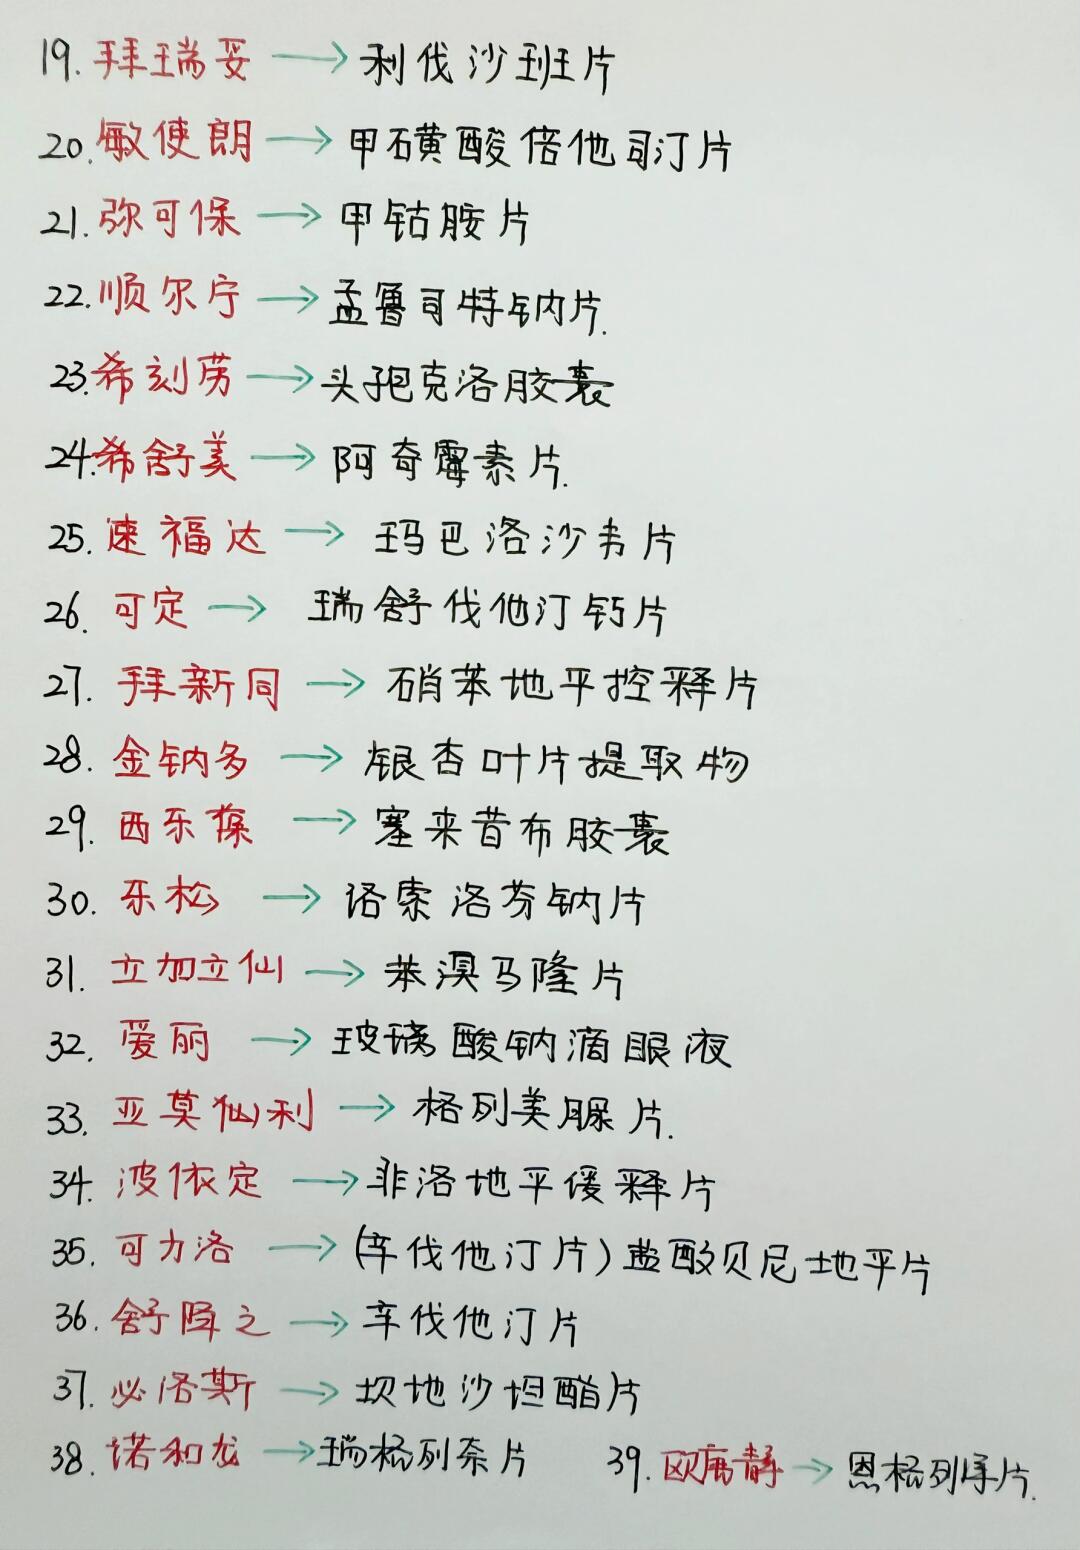 19. 拜瑞妥 → 利伐沙班片
20. 敏使朗 → 甲磺酸倍他司汀片
21. 弥可保 → 甲钴胺片
22. 顺尔宁 → 孟鲁司特钠片.
23. 希刻劳 → 头孢克洛胶囊
24. 希舒美 → 阿奇霉素片.
25. 速福达 → 玛巴洛沙韦片
26. 可定 → 瑞舒伐他汀钙片
27. 拜新同 → 硝苯地平控释片
28. 金钠多 → 银杏叶片提取物
29. 西乐葆 → 塞来昔布胶囊
30. 乐松 → 洛索洛芬钠片
31. 立加立仙 → 苯溴马隆片
32. 爱丽 → 玻璃酸钠滴眼液
33. 亚莫仙利 → 格列美脲片.
34. 波依定 → 非洛地平缓释片
35. 可力洛 → (辛伐他汀片) 盐酸贝尼地平片
36. 舒降之 → 辛伐他汀片
37. 必洛斯 → 坎地沙坦酯片
38. 诺和龙 → 瑞格列奈片 39. 欧唐静 → 恩格列净片.